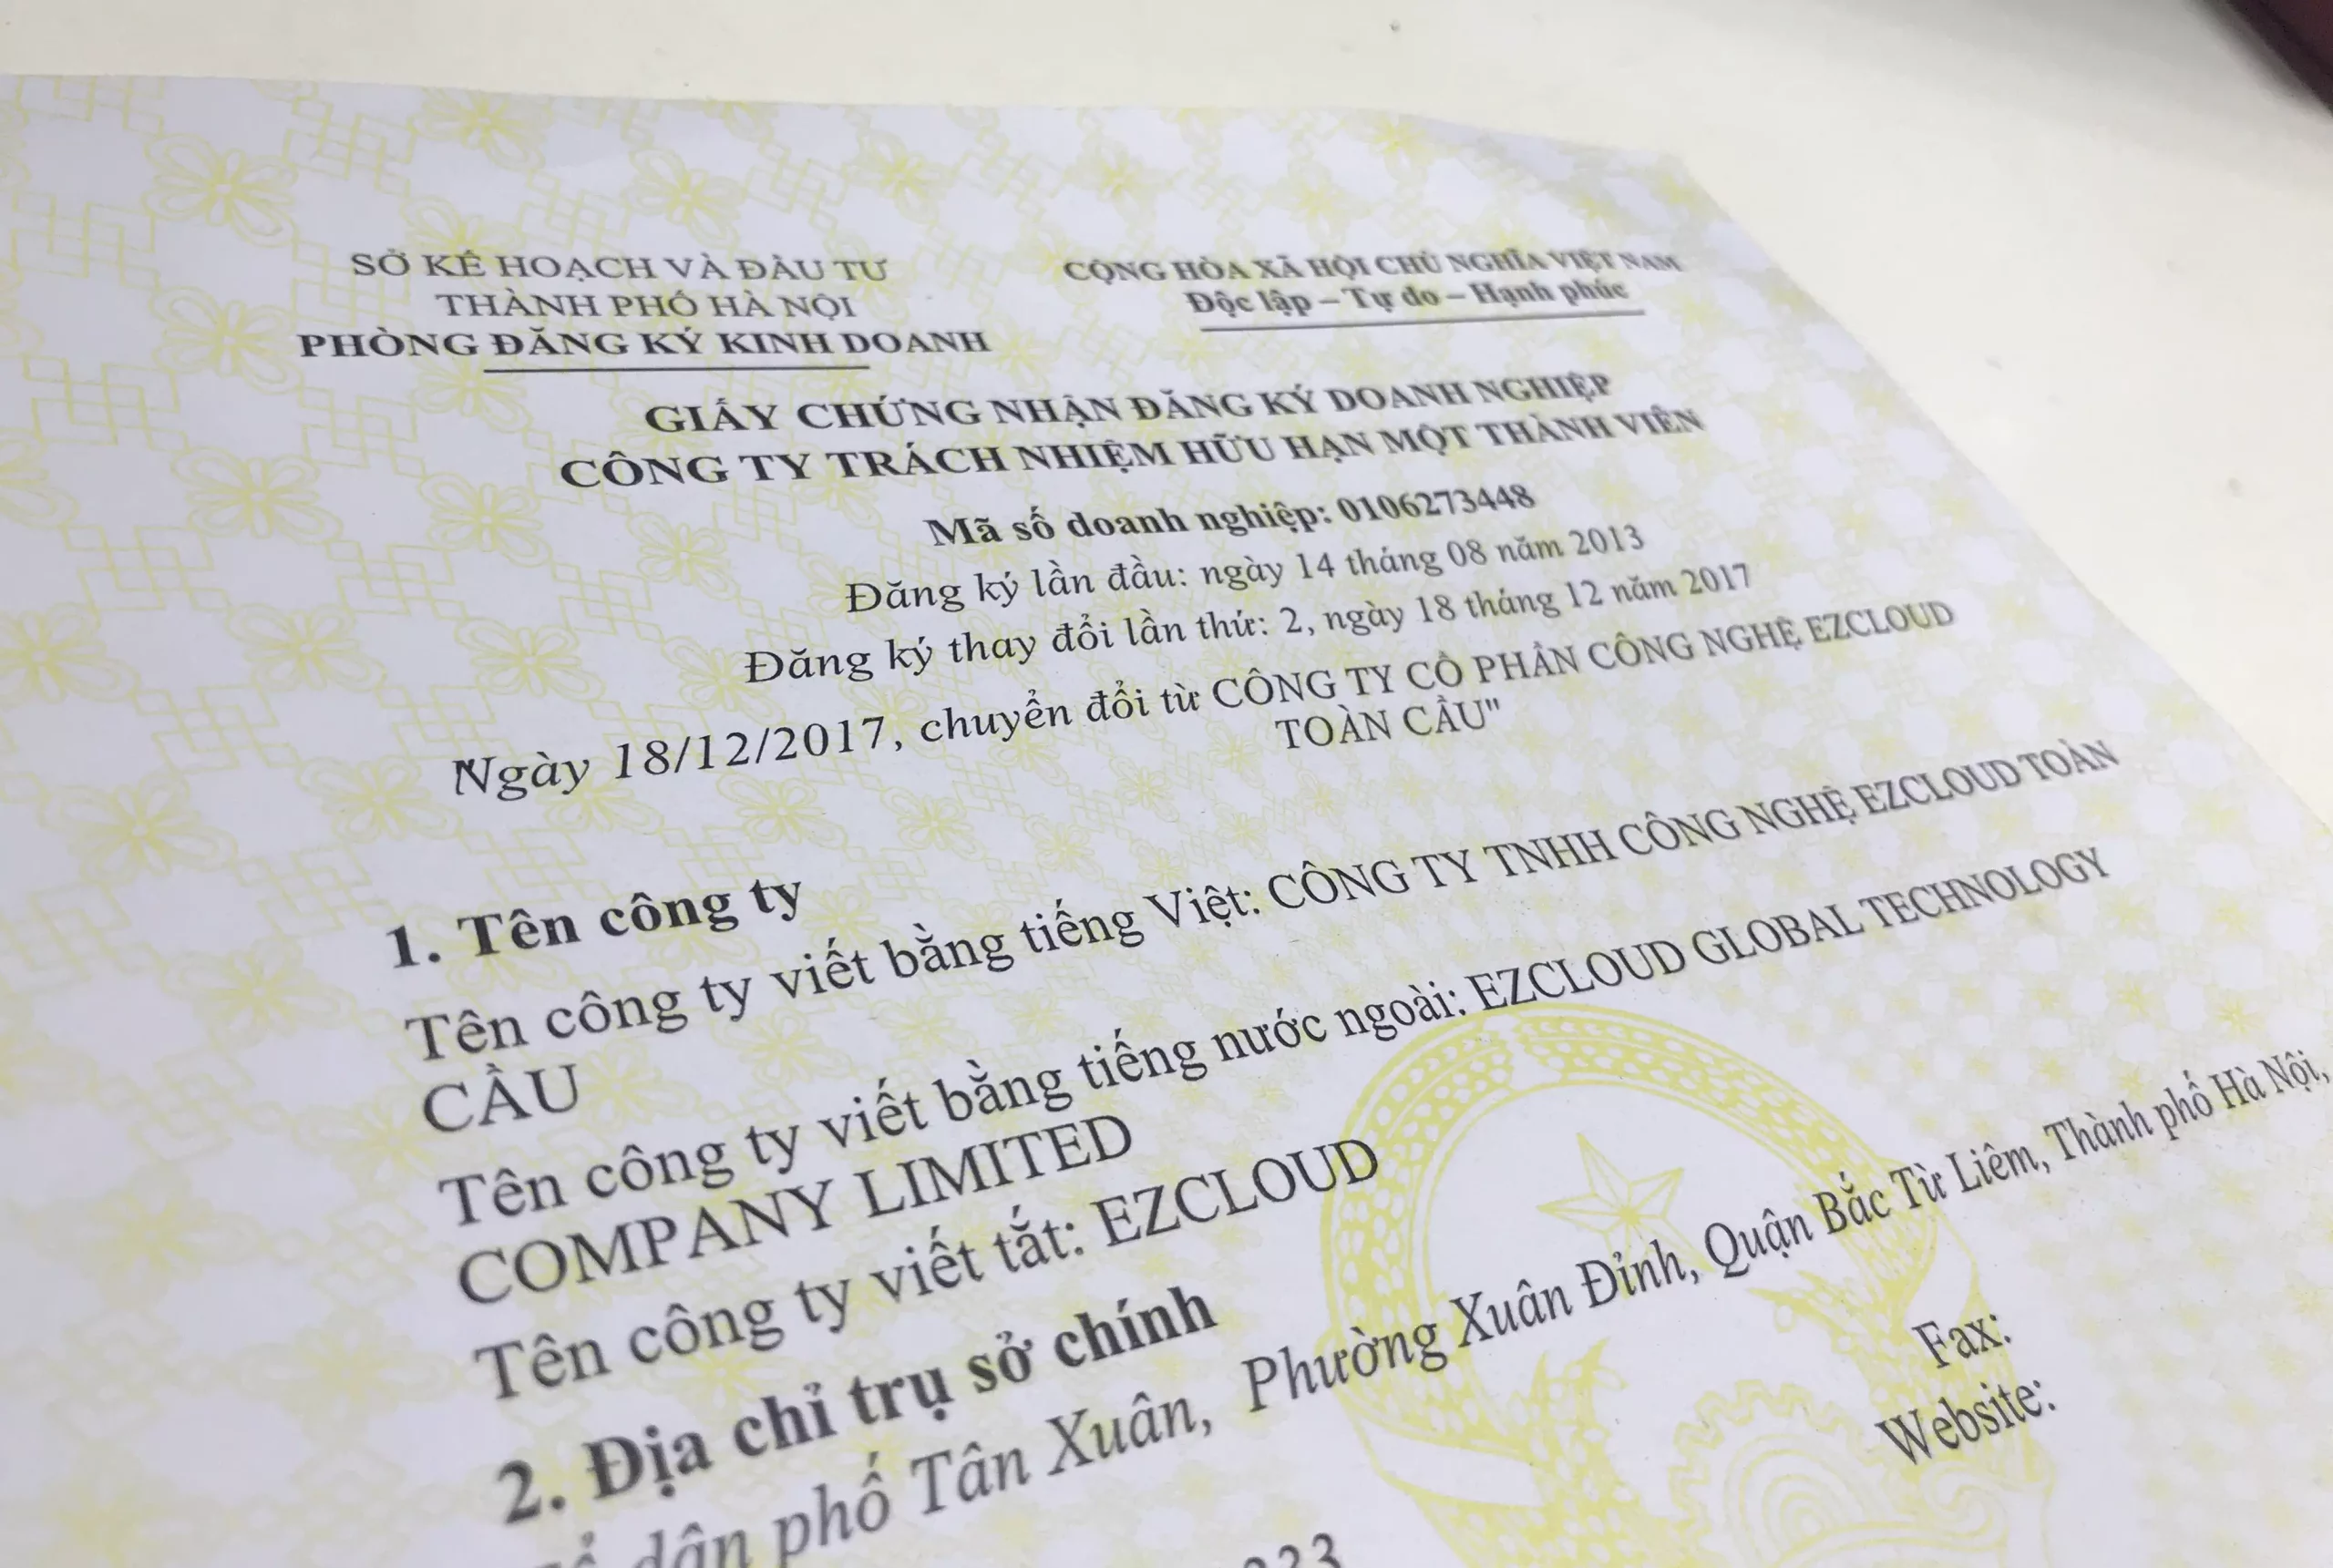 SỞ KẾ HOẠCH VÀ ĐẦU TƯ
THÀNH PHỐ HÀ NỘI
PHÒNG ĐĂNG KÝ KINH DOANH
CỘNG HÒA XÃ HỘI CHỦ NGHĨA VIỆT NAM
Độc lập – Tự do – Hạnh phúc
GIẤY CHỨNG NHẬN ĐĂNG KÝ DOANH NGHIỆP
CÔNG TY TRÁCH NHIỆM HỮU HẠN MỘT THÀNH VIÊN
Mã số doanh nghiệp: 0106273448
Đăng ký lần đầu: ngày 14 tháng 08 năm 2013
Đăng ký thay đổi lần thứ: 2, ngày 18 tháng 12 năm 2017
"Ngày 18/12/2017, chuyển đổi từ CÔNG TY CỔ PHẦN CÔNG NGHỆ EZCLOUD
TOÀN CẦU"
1. Tên công ty
Tên công ty viết bằng tiếng Việt: CÔNG TY TNHH CÔNG NGHỆ EZCLOUD TOÀN
CẦU
Tên công ty viết bằng tiếng nước ngoài: EZCLOUD GLOBAL TECHNOLOGY
COMPANY LIMITED
Tên công ty viết tắt: EZCLOUD
2. Địa chỉ trụ sở chính
dân phố Tân Xuân, Phường Xuân Đỉnh, Quận Bắc Từ Liêm, Thành phố Hà Nội,
Fax:
Website: